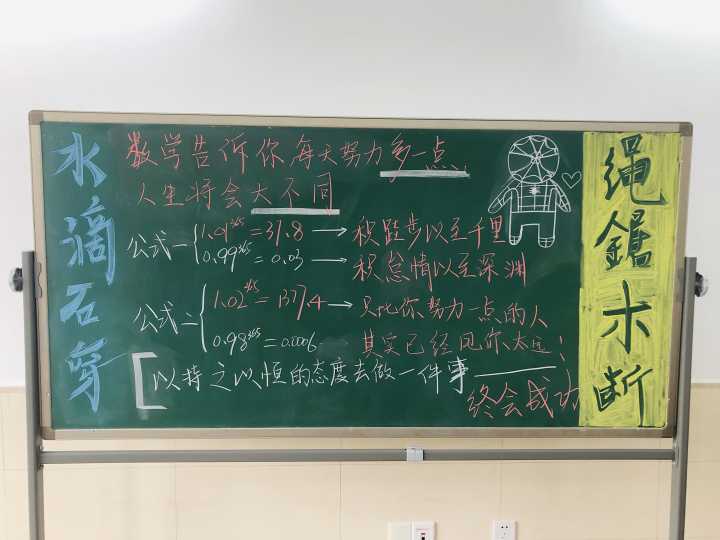 水滴石穿
数学告诉你每天努力多一点
人生将会大不同
公式一{1.01³⁶⁵=37.8→积跬步以至千里
0.99³⁶⁵=0.03→积怠惰以至深渊
公式二{1.02³⁶⁵=1377.4→只比你努力一点的人
0.98³⁶⁵=0.0006 其实已经甩你太远!
[以持之以恒的态度去做一件事——
终会成功
绳锯木断